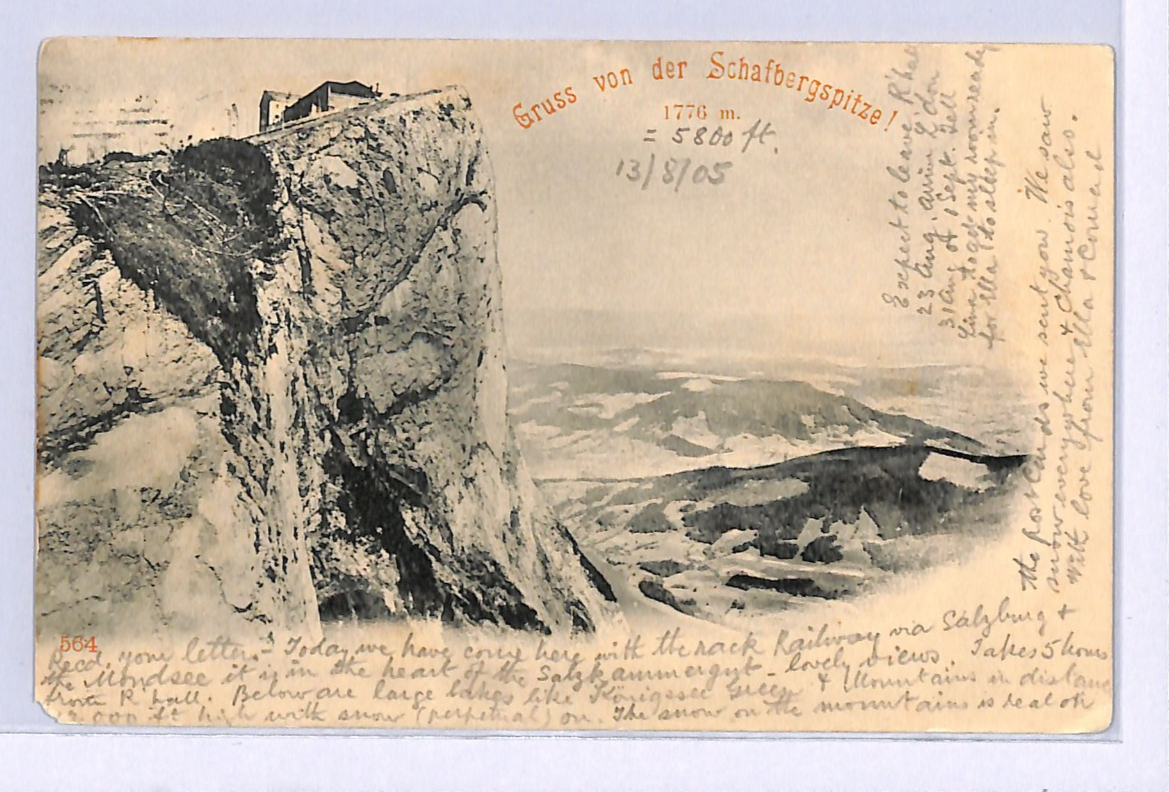 Gruss von der Schafbergspitze!
1776 m.
= 5800 ft.
13/8/05
564
Recd. your letter. Today we have come here with the rack Railway via Salzburg +
the Mondsee it is in the heart of the Salzkammergut - lovely views. Takes 5 hours
from R hall. Below are large lakes like Königssee green + Mountains in distance
000 ft high with snow (perpetual) on. The snow on the mountains is real on
the post cards we sent you. We saw
snow everywhere + Chamois also.
With love from Ella + Conrad
Expect to leave R'hall
23 Aug. arrive Ldon
31 Aug or 1 Sept. Tell
to get my room ready
for Ella to sleep in.